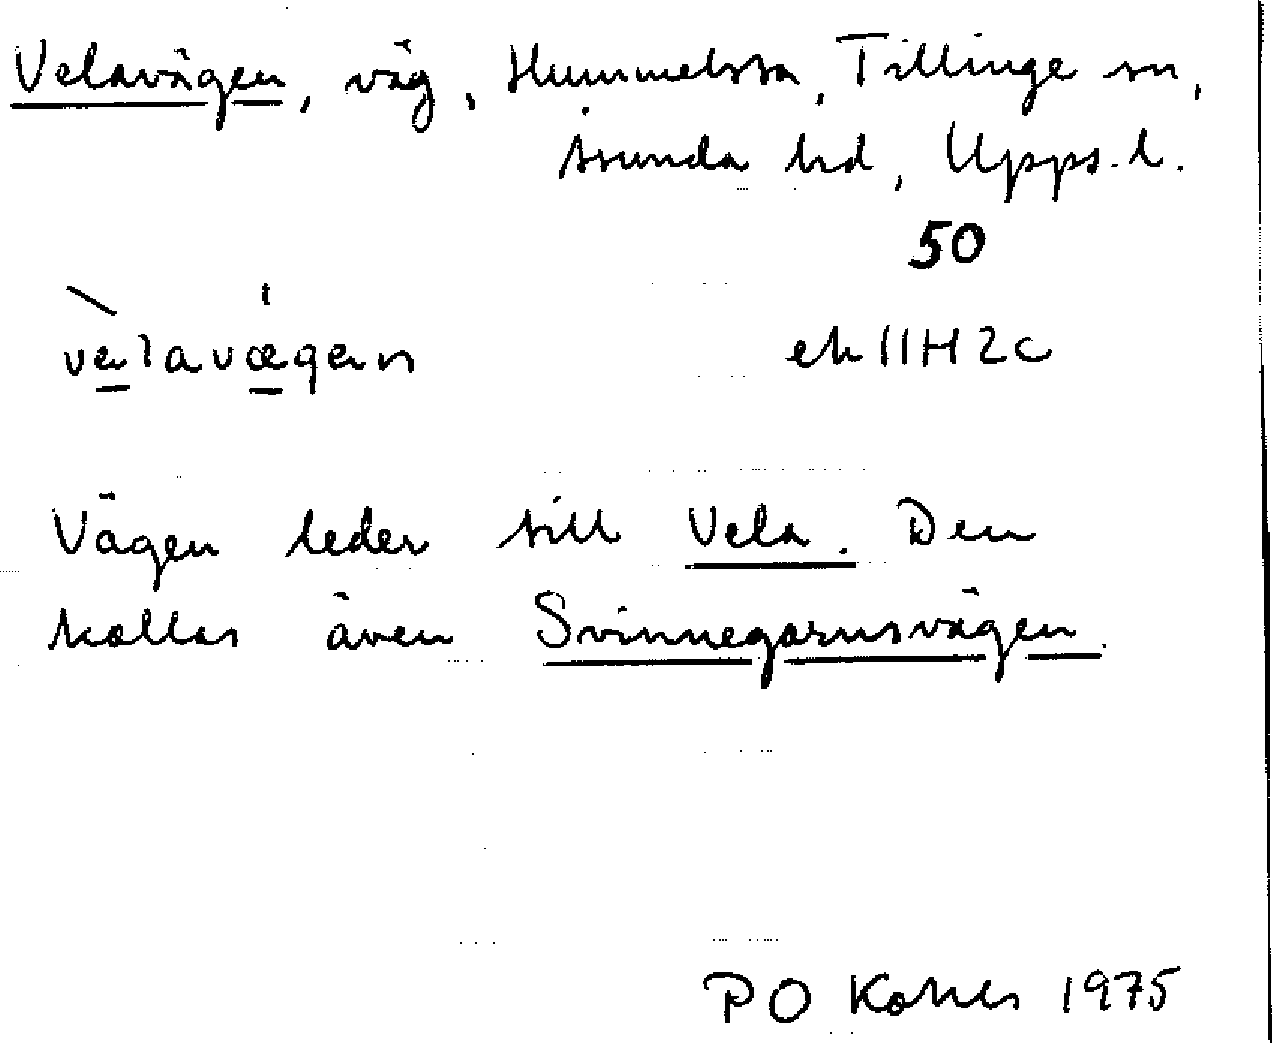 Velavägen, väg, Hummelsta, Tillinge sn,
Åsunda hd, Upps. l.
50
velavægen ek 11H2c
Vägen leder till Vela. Den
kallas även Svinnegarnsvägen.
P O 1975